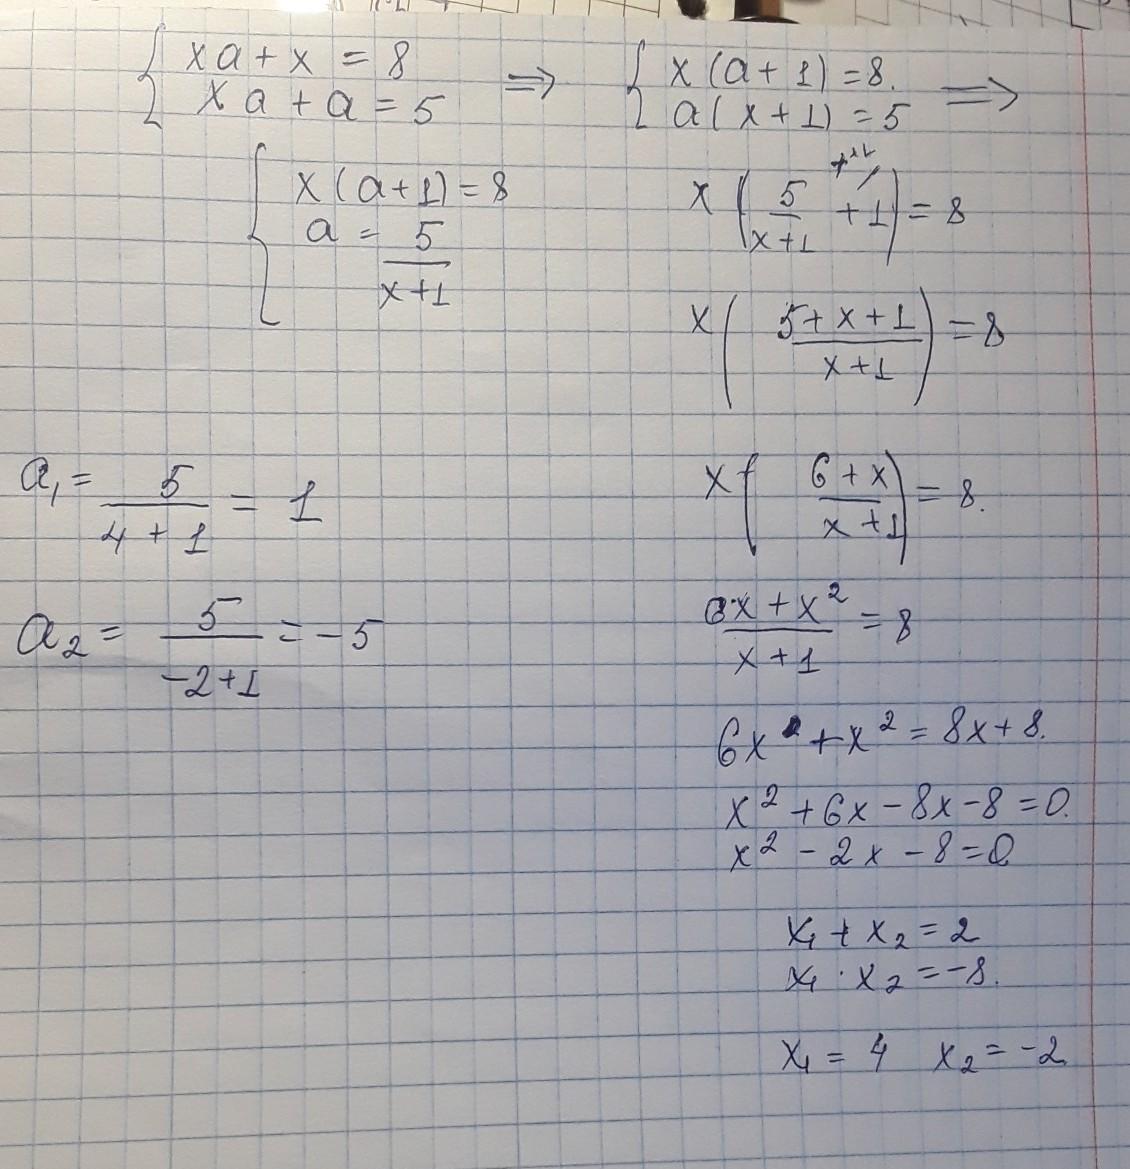 { xa + x = 8
xa + a = 5 ⟹ { x(a+1) = 8.
a(x+1) = 5 ⟹
{ x(a+1) = 8
a = 5/(x+1)
x(5/(x+1) + 1) = 8
x((5+x+1)/(x+1)) = 8
x((6+x)/(x+1)) = 8.
(6x + x²)/(x+1) = 8
6x + x² = 8x + 8.
x² + 6x - 8x - 8 = 0.
x² - 2x - 8 = 0
x₁ + x₂ = 2
x₁ · x₂ = -8.
x₁ = 4 x₂ = -2
a₁ = 5/(4+1) = 1
a₂ = 5/(-2+1) = -5